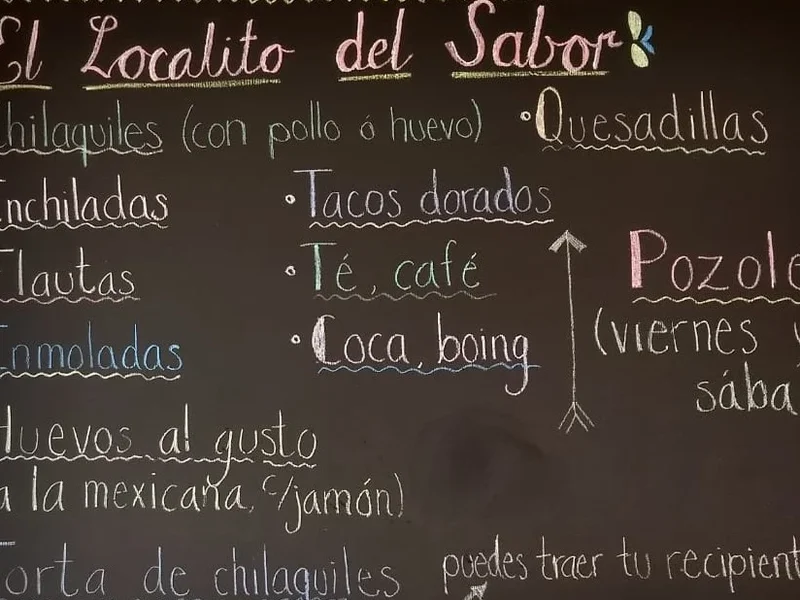 El Localito del Sabor
hilaquiles (con pollo ó huevo) • Quesadillas
nchiladas • Tacos dorados
lautas • Té, café Pozole
nmoladas • Coca, boing (viernes y
sába
Huevos al gusto
a la mexicana, c/jamón)
orta de chilaquiles puedes traer tu recipient